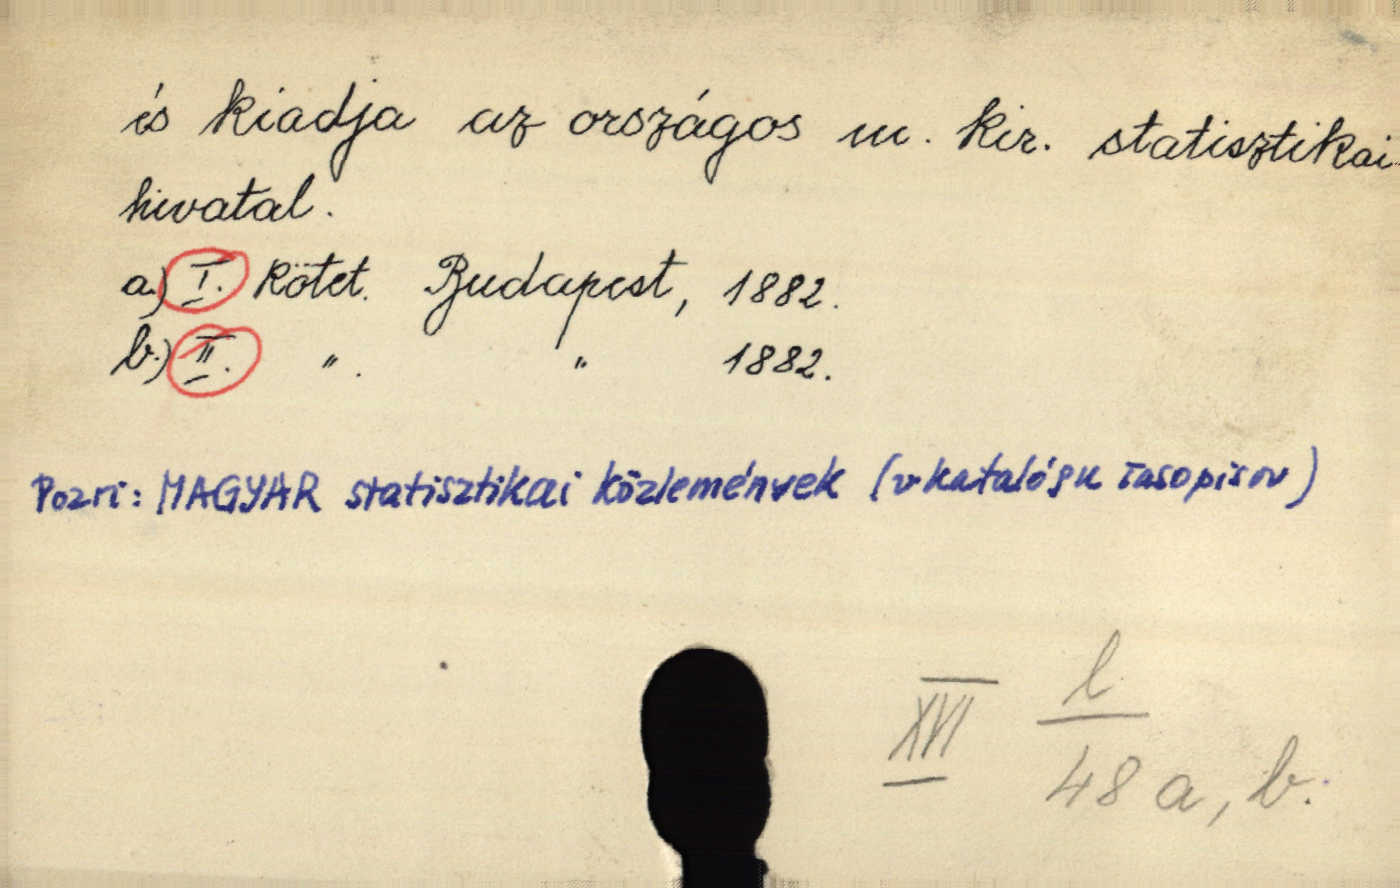 és kiadja az országos m. kir. statisztikai
hivatal.
a.) I. kötet. Budapest, 1882.
b.) II. " . " 1882.
Pozri: MAGYAR statisztikai közlemények (v katalógu časopisov)
XVI l
48 a, b.